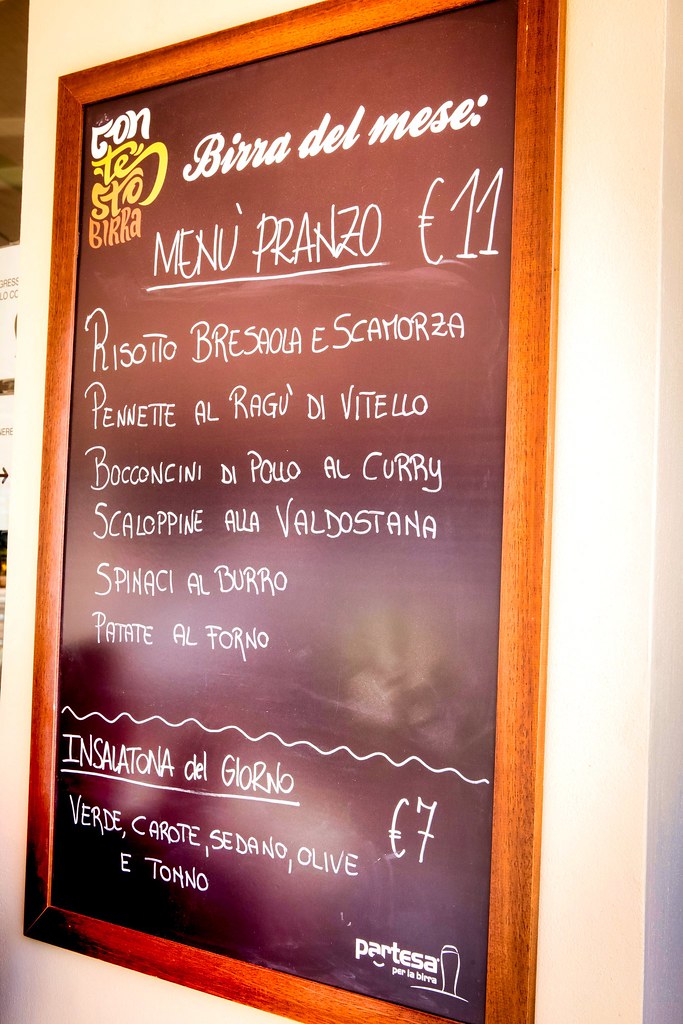 Con
te
sto
BIRRa
Birra del mese:
MENÙ PRANZO €11
RISOTTO BRESAOLA E SCAMORZA
PENNETTE AL RAGU' DI VITELLO
BOCCONCINI DI POLLO AL CURRY
SCALOPPINE ALLA VALDOSTANA
SPINACI AL BURRO
PATATE AL FORNO
INSALATONA del GIORNO
€7
VERDE, CAROTE, SEDANO, OLIVE
E TONNO
partesa
per la birra